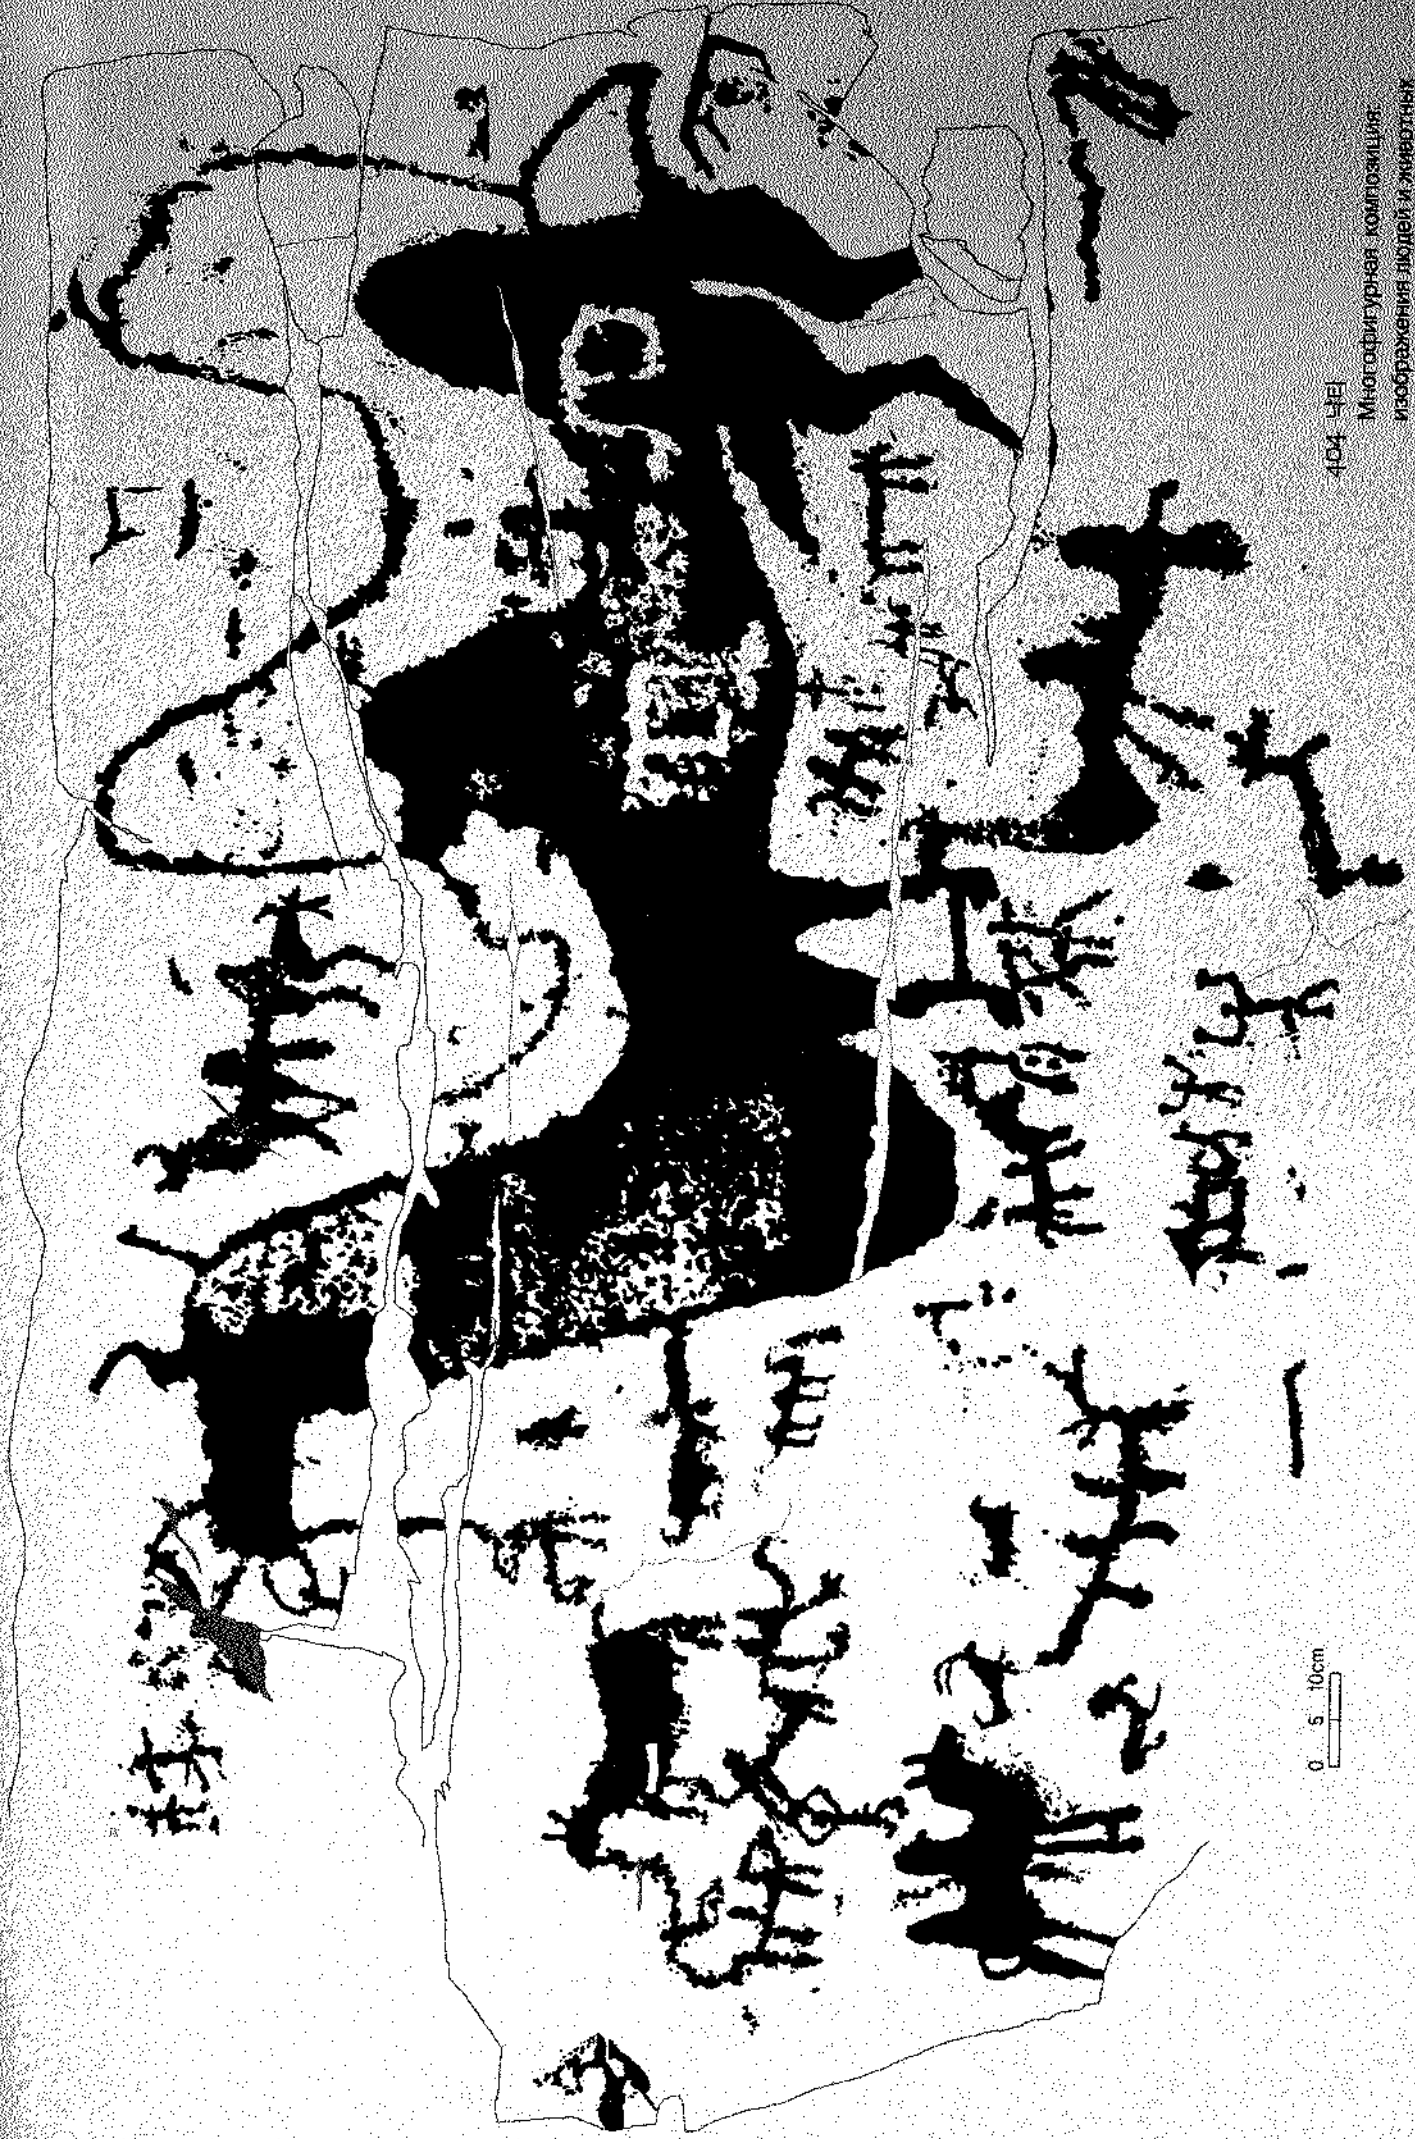 404 낵
Многофигурная композиция:
изображения людей и животных
0 5 10cm